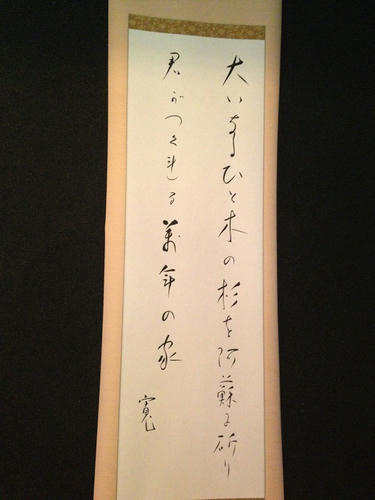 大いなるひと木の杉を阿蘇に斫り
君がつくれる萬年の家
寛